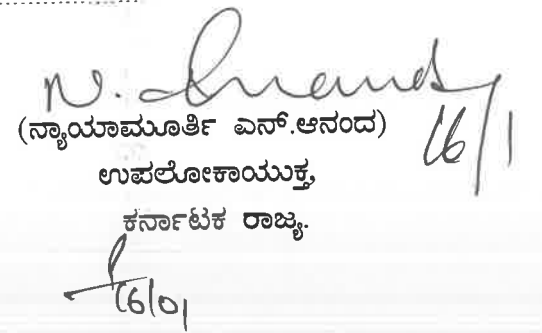 N. Anand
(ನ್ಯಾಯಾಮೂರ್ತಿ ಎನ್.ಆನಂದ) 16/1
ಉಪಲೋಕಾಯುಕ್ತ,
ಕರ್ನಾಟಕ ರಾಜ್ಯ.
16/01